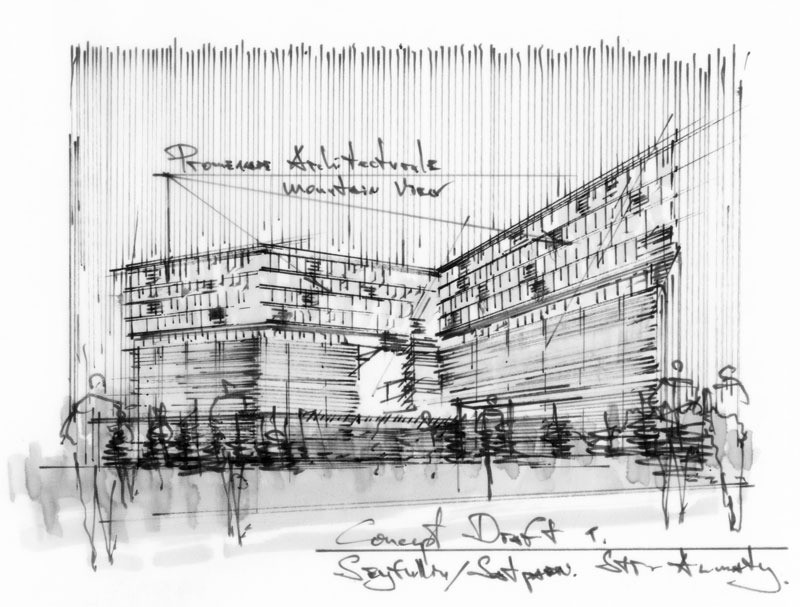 Promenade Architecturale
Mountain View
Concept Draft 1.
Seyfullin/Satpaev. Str. Almaty.